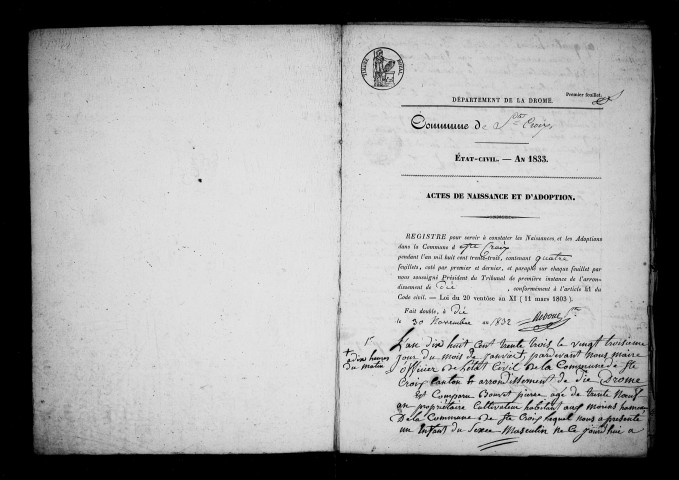 TIMBRE ROYAL
Premier feuillet.
DÉPARTEMENT DE LA DROME.
Commune de Ste Croix
ÉTAT-CIVIL. — AN 1833.
ACTES DE NAISSANCE ET D'ADOPTION.
REGISTRE pour servir à constater les Naissances et les Adoptions
dans la Commune d Ste Croix
pendant l'an mil huit cent trente-trois, contenant quatre
feuillets, coté par premier et dernier, et paraphé sur chaque feuillet par
nous soussigné Président du Tribunal de première instance de l'arron-
dissement de Die, conformément à l'article 41 du
Code civil. — Loi du 20 ventôse an XI (11 mars 1803).
Fait double, à Die
le 30 Novembre an 1832
1er
L'an dix huit cent trente trois le vingt troisieme
+ a dix heures
du matin
jour du mois de janvier, pardevant nous maire
officier de l'état Civil de la Commune de Ste
Croix canton et arrondissement de die Drome
est Comparu pierre age de trente Neuf
an propriétaire Cultivateur habitant aux
De la Commune de Ste Croix lequel nous a présenté
un Enfant du Sexce Masculin ne Ce jourdhui a